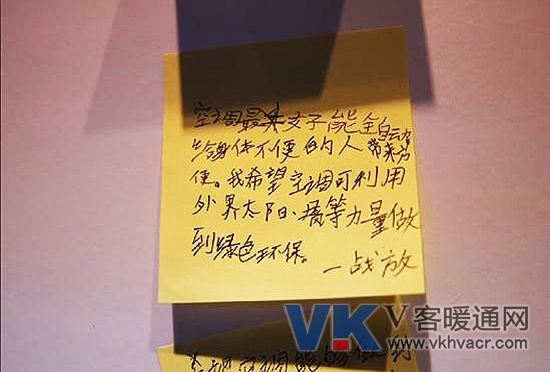 空调最好能
给身体不便的人带来方
便。我希望空调可利用
外界太阳、等力量做
到绿色环保。
一战放
空调能够做到
VK V客暖通网
www.vkhvacr.com